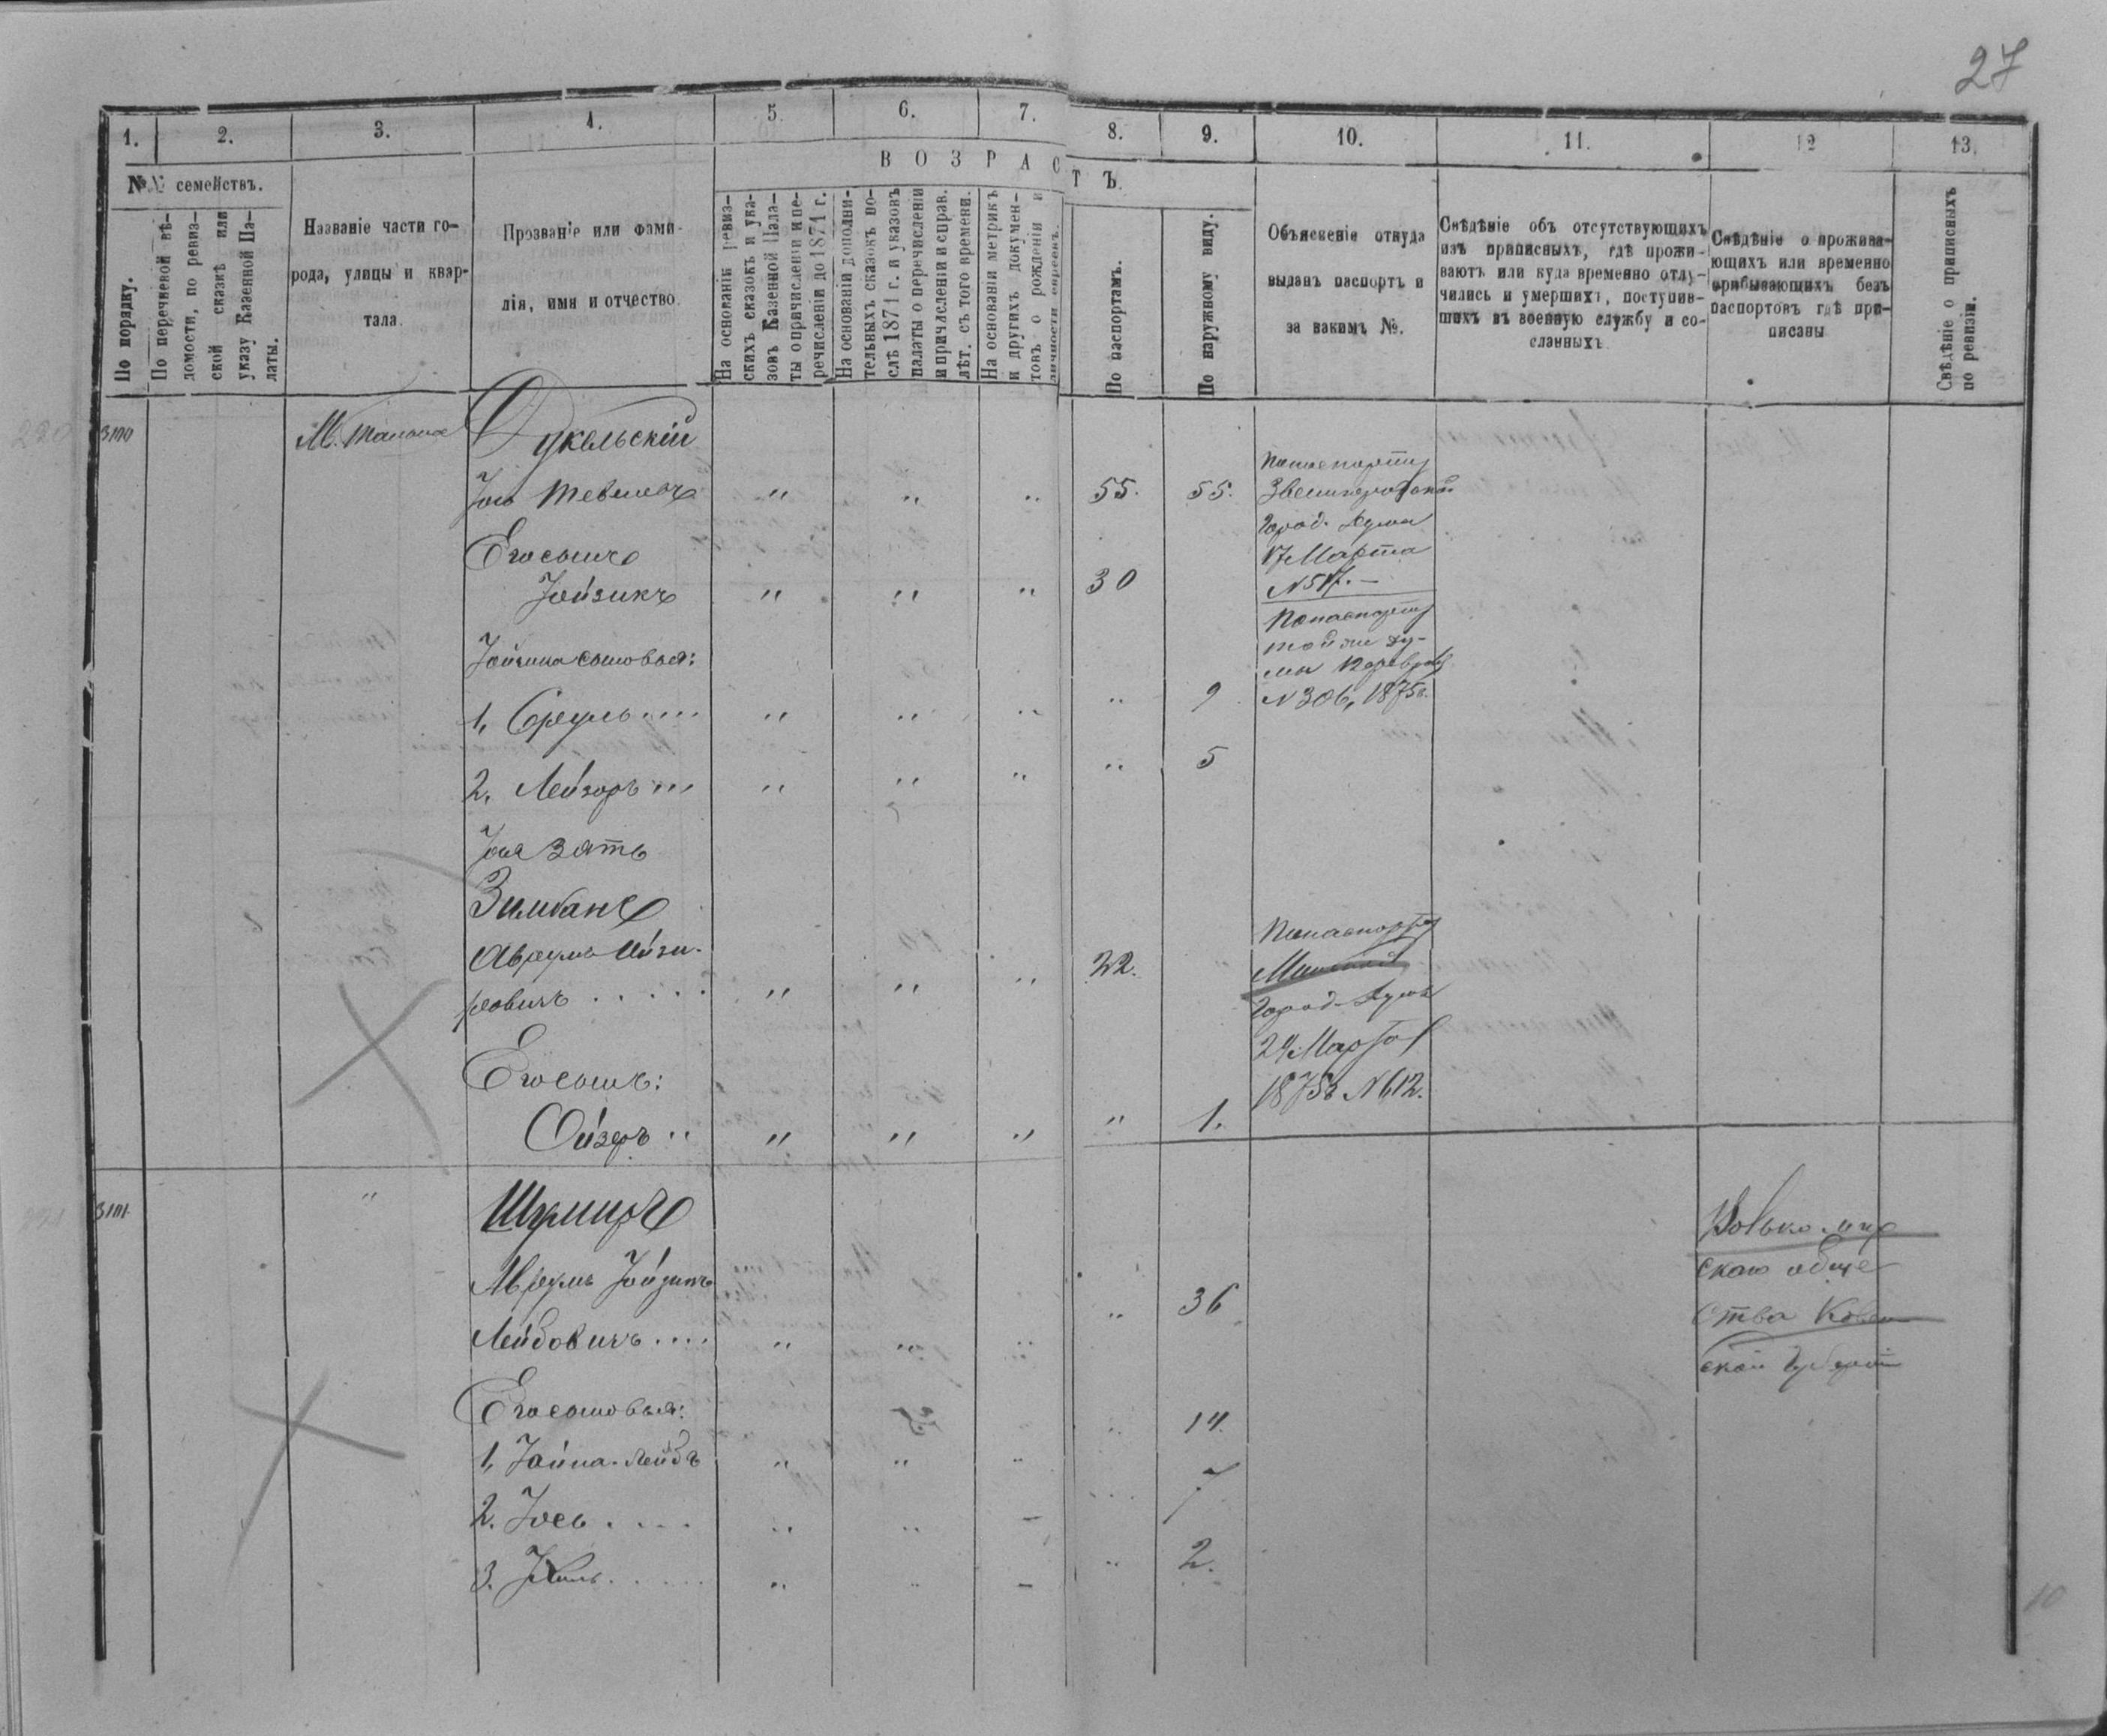 27
1. 2. 3. 4. 5. 6. 7. 8. 9. 10. 11. 12 13.
ВОЗРАСТЪ.
№№ семействъ.
По порядку.
По перечневой вѣ-
домости, по ревиз-
ской сказкѣ или
указу Казенной Па-
латы.
Названіе части го-
рода, улицы и квар-
тала.
Прозваніе или фами-
лія, имя и отчество.
На основаніи ревиз-
скихъ сказокъ и ука-
зовъ Казенной Пала-
ты о причисленіи и пе-
речисленіи до 1871 г.
На основаніи дополни-
тельныхъ сказокъ по-
слѣ 1871 г. и указовъ
палаты о перечисленіи
и причисленіи и справ.
лѣт. съ того времени.
На основаніи метрикъ
и другихъ докумен-
товъ о рожденіи и
личности евреевъ.
По паспортамъ.
По наружному виду.
Объясненіе откуда
выданъ паспортъ и
за какимъ №.
Свѣдѣніе объ отсутствующихъ
изъ приписныхъ, гдѣ прожи-
ваютъ или куда временно отлу-
чились и умершихъ, поступив-
шихъ въ военную службу и со-
сланныхъ.
Свѣдѣніе о прожива-
ющихъ или временно
прибывающихъ безъ
паспортовъ гдѣ при-
писаны
Свѣдѣніе о приписныхъ
по ревизіи.
Дукельскій
" " " 55. 55.
По паспорту
Звенигородской
Город. Думы
17 Марта
N 517. —
Его сынъ
Іойзикъ " " " 30
По паспорту
той же Ду-
мы
N 306, 1875г.
сыновья:
1, Сруль .... " " " " 9
2, Лейзоръ ... " " " " 5
Іося зять
Зимбанъ
Аврумъ Айзи-
ровичъ ..... " " " 22.
По паспорту
Город. Думы
29 Марта
1875г N 612.
Его сынъ:
Ойзеръ " " " " " 1.
"
Аврумъ
Лейбовичъ .... " " " " 36
Вилькомир
скаго обще
ства Ковен
ской Губерніи
Его сыновья:
1, Лейбъ " " " " 14.
2. Іось .... " " — " 7
3. " " — " 2.